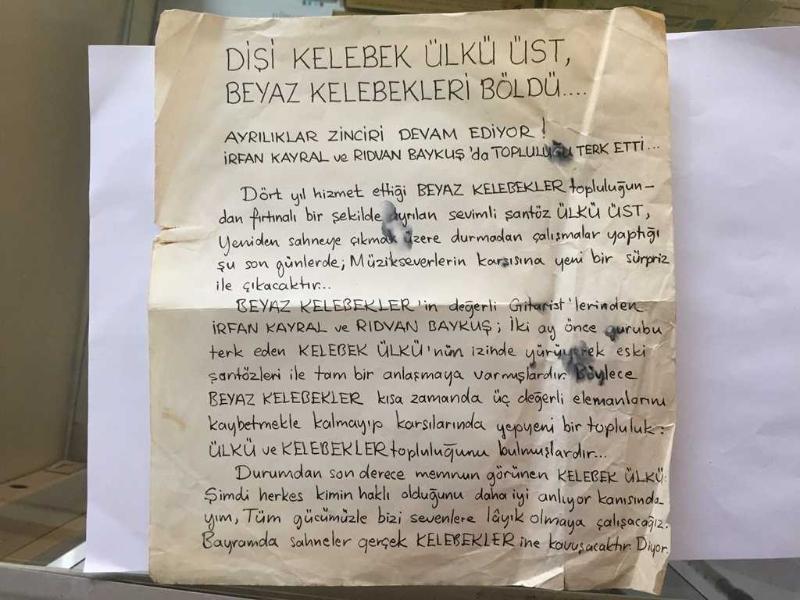 DİŞİ KELEBEK ÜLKÜ ÜST,
BEYAZ KELEBEKLERİ BÖLDÜ....
AYRILIKLAR ZİNCİRİ DEVAM EDİYOR !
İRFAN KAYRAL ve RIDVAN BAYKUŞ'da TOPLULUĞU TERK ETTİ...
Dört yıl hizmet ettiği BEYAZ KELEBEKLER topluluğun-
dan fırtınalı bir şekilde ayrılan sevimli şantöz ÜLKÜ ÜST,
Yeniden sahneye çıkmak üzere durmadan çalışmalar yaptığı
şu son günlerde; Müzikseverlerin karşısına yeni bir sürpriz
ile çıkacaktır...
BEYAZ KELEBEKLER'in değerli Gitarist'lerinden
İRFAN KAYRAL ve RIDVAN BAYKUŞ; İki ay önce gurubu
terk eden KELEBEK ÜLKÜ'nün izinde yürüyerek eski
şantözleri ile tam bir anlaşmaya varmışlardır. Böylece
BEYAZ KELEBEKLER kısa zamanda üç değerli elemanlarını
kaybetmekle kalmayıp karsılarında yepyeni bir topluluk:
ÜLKÜ ve KELEBEKLER topluluğunu bulmuşlardır...
Durumdan son derece memnun görünen KELEBEK ÜLKÜ:
Şimdi herkes kimin haklı olduğunu daha iyi anlıyor kanısında
yım, Tüm gücümüzle bizi sevenlere lâyik olmaya çalışacağız.
Bayramda sahneler gerçek KELEBEKLER ine kavuşacaktır. Diyor.